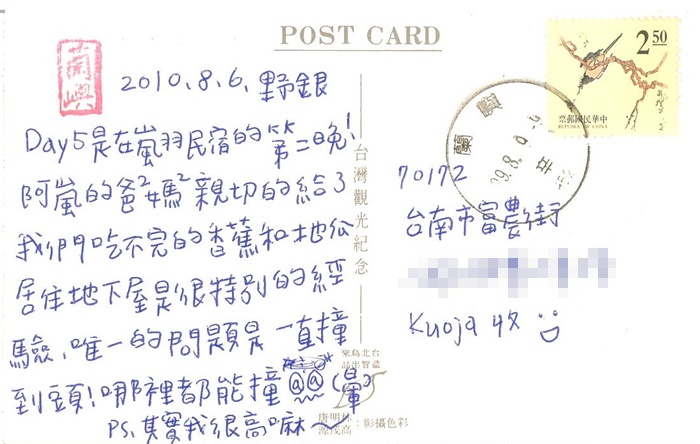 POST CARD
蘭嶼
2010.8.6. 野銀
Day5是在嵐羽民宿的第二晚!
阿嵐的爸²媽²親切的給了
我們吃不完的香蕉和地瓜
居住地下屋是很特別的經
驗,唯一的問題是一直撞
到頭!哪裡都能撞(暈)
PS.其實我很高嘛~
台灣觀光紀念
2 50
中華民國郵票
REPUBLIC OF CHINA
蘭嶼
99.8.9
70172
台南市富農街
Kuoja 收
彩色攝影: